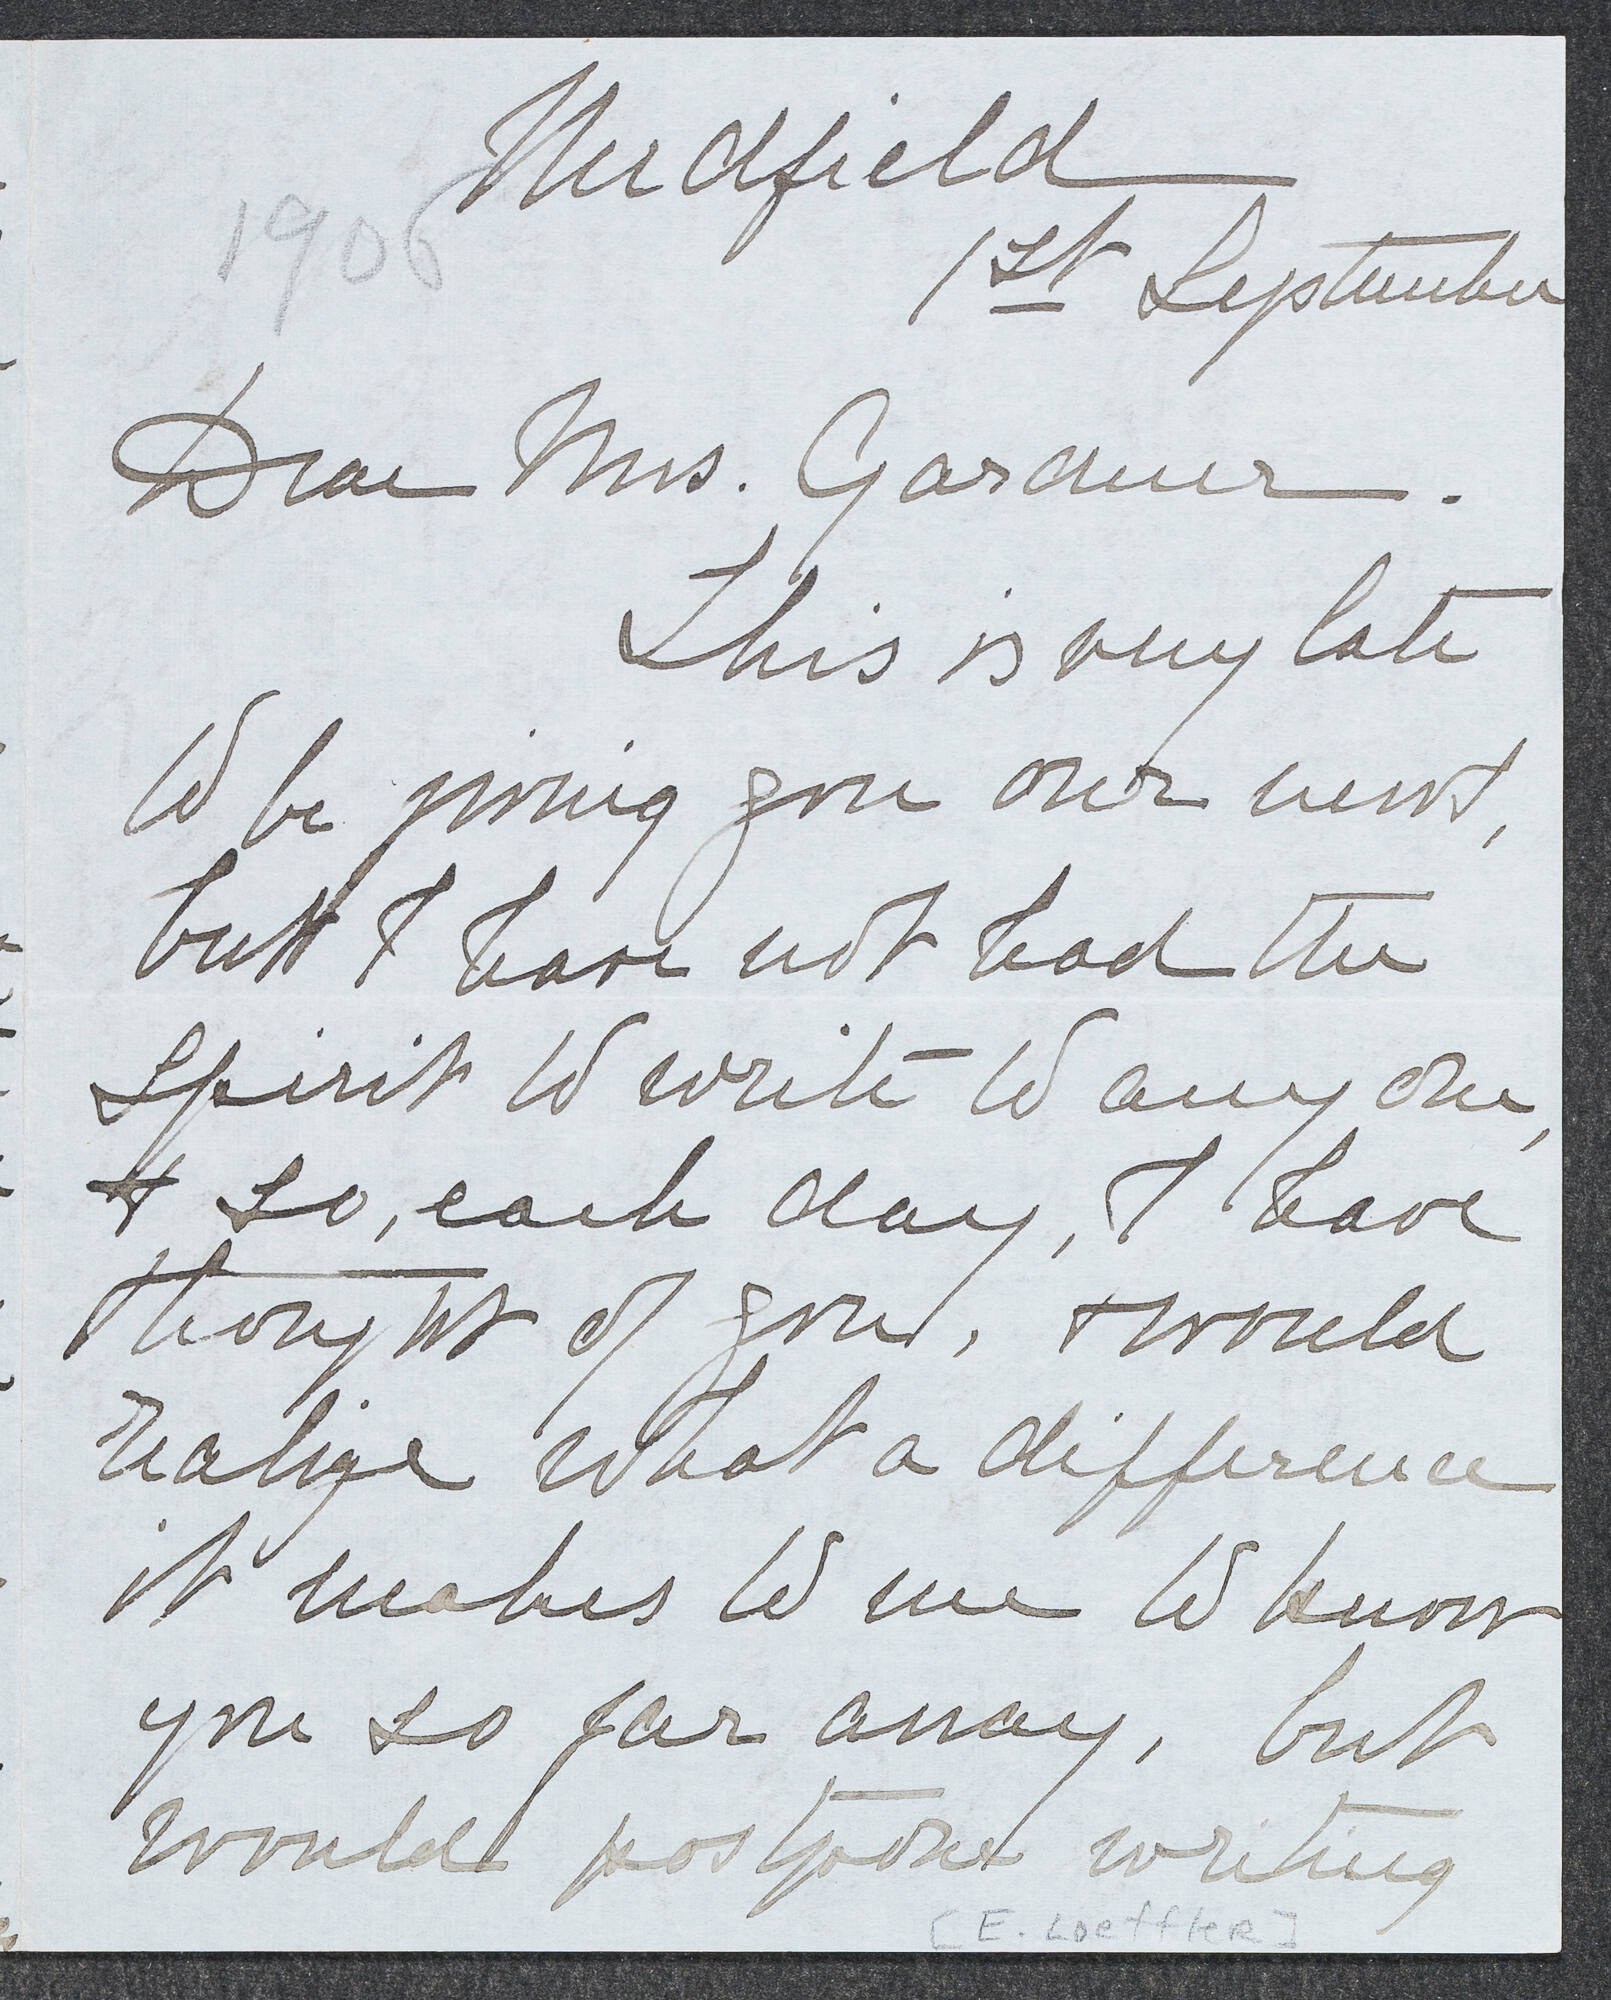 Medfield
1906
1st September
Dear Mrs. Gardner.
This is very late
to be giving you our news,
but I have not had the
spirit to write to any one,
& so, each day, I have
thought of you, & would
realize what a difference
it makes to me to know
you so far away, but
would postpone writing
[E. Loeffler]